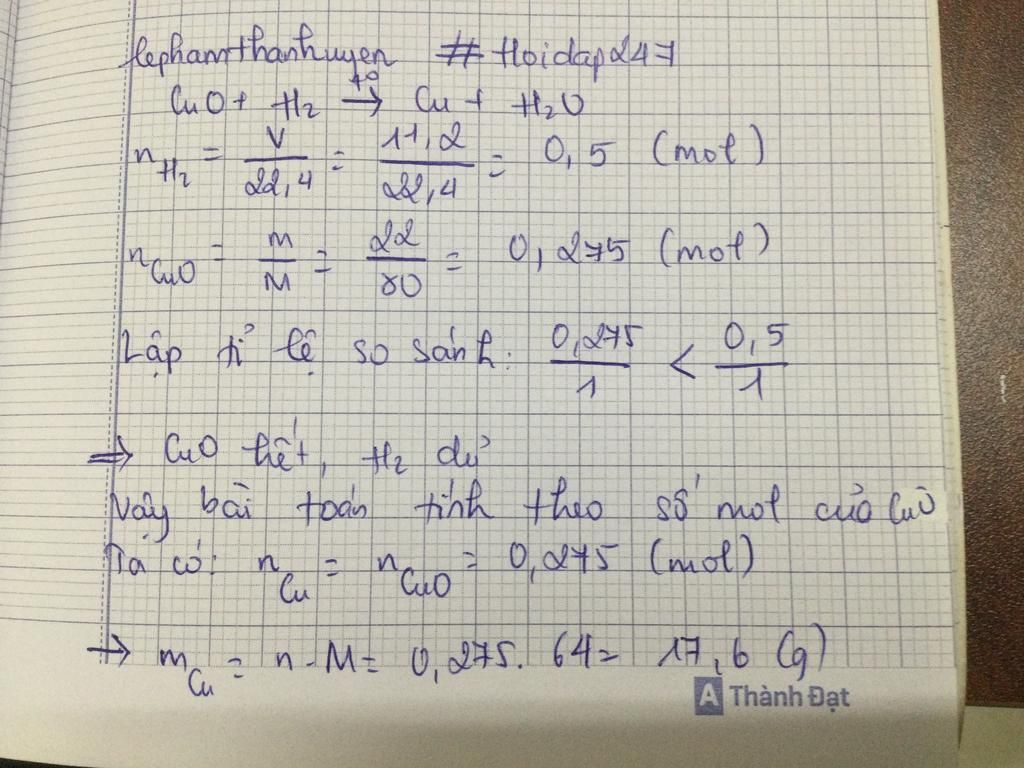 lephamthanhuyen #Hoidap247
CuO + H₂ →(t°) Cu + H₂O
n_H₂ = V/22,4 = 11,2/22,4 = 0,5 (mol)
n_CuO = m/M = 22/80 = 0,275 (mol)
Lập tỉ lệ so sánh: 0,275/1 < 0,5/1
⇒ CuO hết, H₂ dư
Vậy bài toán tính theo số mol của CuO
Ta có: n_Cu = n_CuO = 0,275 (mol)
→ m_Cu = n.M = 0,275.64 = 17,6 (g)
A Thành Đạt